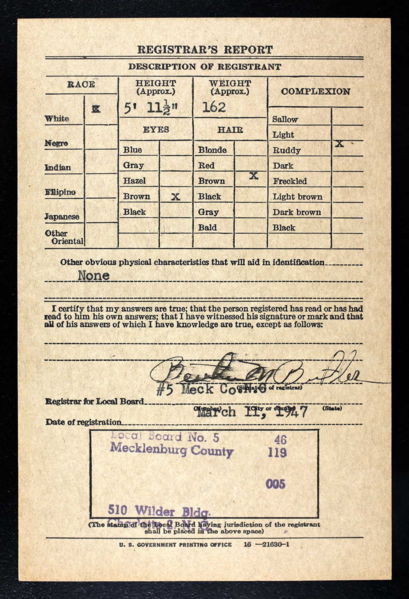 REGISTRAR'S REPORT
DESCRIPTION OF REGISTRANT
RACE
HEIGHT (Approx.)
WEIGHT (Approx.)
COMPLEXION
5' 11½"
162
White x
Negro
Indian
Filipino
Japanese
Other Oriental
EYES
Blue
Gray
Hazel
Brown x
Black
HAIR
Blonde
Red
Brown x
Black
Gray
Bald
Sallow
Light
Ruddy x
Dark
Freckled
Light brown
Dark brown
Black
Other obvious physical characteristics that will aid in identification
None
I certify that my answers are true; that the person registered has read or has had
read to him his own answers; that I have witnessed his signature or mark and that
all of his answers of which I have knowledge are true, except as follows:
(Signature of registrar)
Registrar for Local Board #5 Meck Co.N.C
(Number) (City or county) (State)
Date of registration March 11, 1947
Local Board No. 5 46
Mecklenburg County 119
005
510 Wilder Bldg.
(The stamp of the Local Board having jurisdiction of the registrant
shall be placed in the above space)
U. S. GOVERNMENT PRINTING OFFICE 16—21630-1